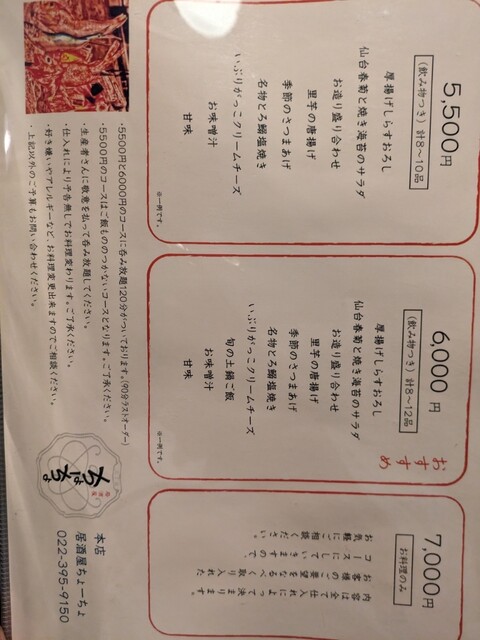 5,500円
(飲み物つき) 計8~10品
厚揚げしらすおろし
仙台春菊と焼き海苔のサラダ
お造り盛り合わせ
里芋の唐揚げ
季節のさつまあげ
名物とろ鰯塩焼き
いぶりがっこクリームチーズ
お味噌汁
甘味
※一例です。
6,000円
(飲み物つき) 計8~12品
おすすめ
厚揚げしらすおろし
仙台春菊と焼き海苔のサラダ
お造り盛り合わせ
里芋の唐揚げ
季節のさつまあげ
名物とろ鰯塩焼き
いぶりがっこクリームチーズ
旬の土鍋ご飯
お味噌汁
甘味
※一例です。
7,000円
お料理のみ
内容は全て仕入れによって決まります。
お客様のご要望をなるべく取り入れた
コースにしていきますので
お気軽にご相談ください。
・5500円と6000円のコースに呑み放題120分がついております。(90分ラストオーダー)
・5500円のコースはご飯もののつかないコースとなります。ご了承ください。
・生産者さんに敬意を払って呑み放題してください。
・仕入れにより予告無しでお料理変わります。ご了承ください。
・好き嫌いやアレルギーなど、お料理変更出来ますのでご相談ください。
・上記以外のご予算もお問い合わせください。
居酒屋
ちょーちょ
本店
居酒屋ちょーちょ
022-395-9150